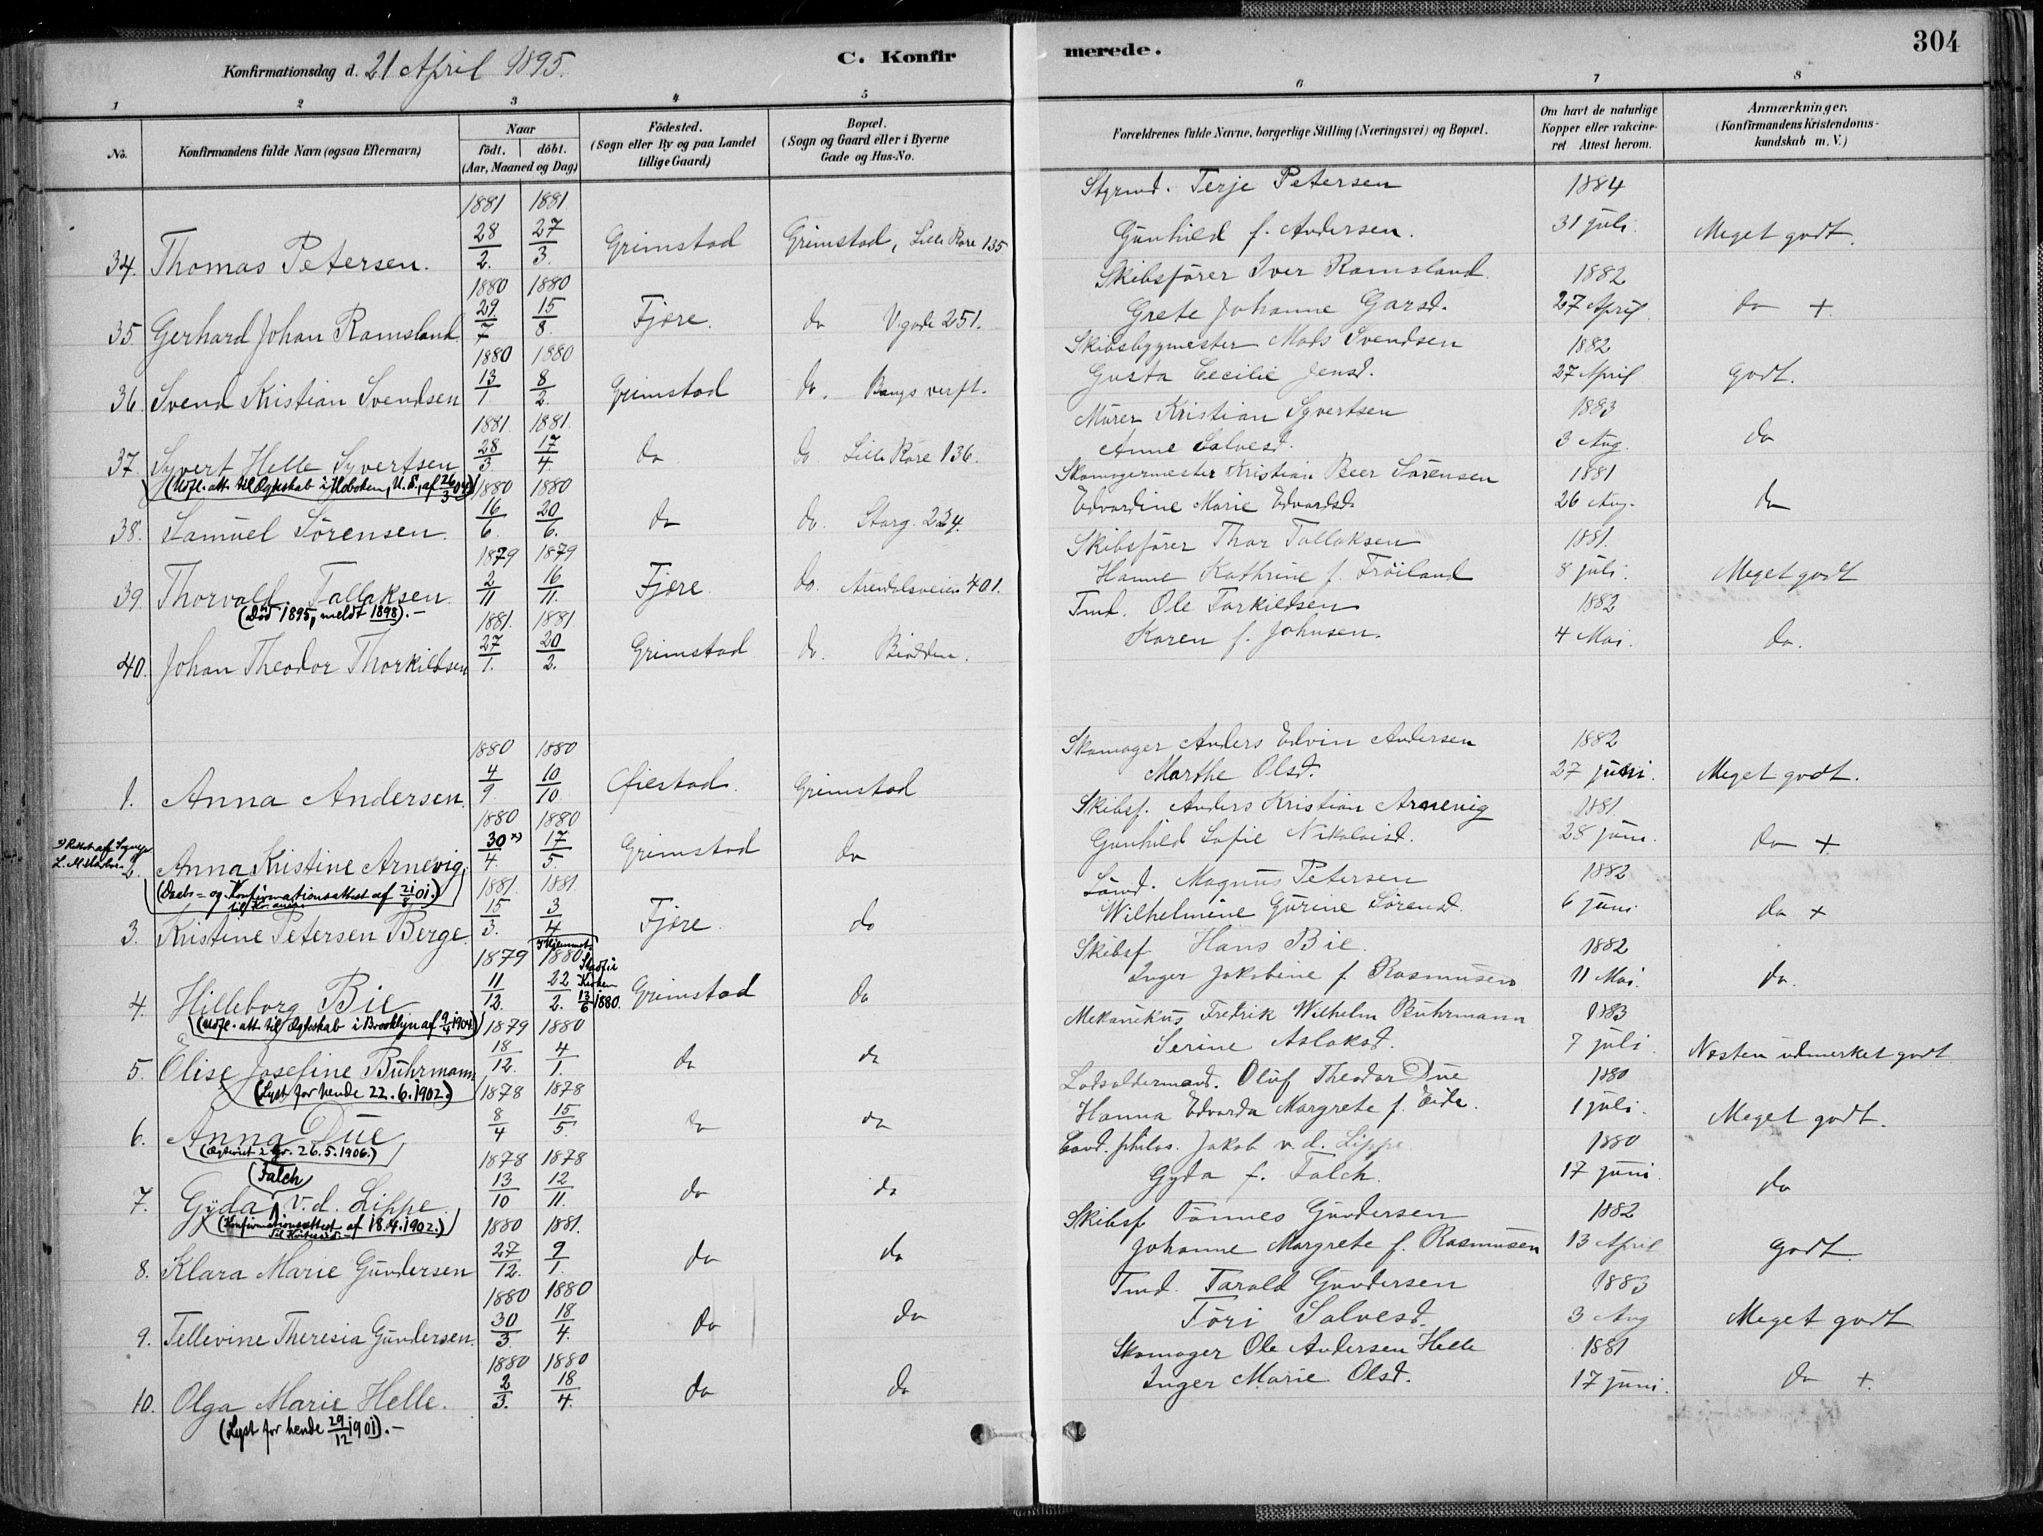 304
Konfirmationsdag d. 21 April 1895.
C. Konfirmerede.
1 2 3 4 5 6 7 8
No.
Konfirmandens fulde Navn (ogsaa Efternavn)
Naar
födt. döbt.
(Aar, Maaned og Dag)
Födested.
(Sogn eller By og paa Landet
tillige Gaard)
Bopæl.
(Sogn og Gaard eller i Byerne
Gade og Hus-No.
Forældrenes fulde Navne, borgerlige Stilling (Næringsvei) og Bopæl.
Om havt de naturlige
Kopper eller vakcine-
ret Attest herom.
Anmærkninger.
(Konfirmandens Kristendoms-
kundskab m. V.)
1881 1881 Styrmd. Terje Petersen 1884
34. Thomas Petersen. 28/2. 27/3. Grimstad Grimstad, Lille Rore 135 Gunhild f. Andersen. 31 juli Meget godt.
1880 1880 Skibsfører Iver Ramsland 1882
35. Gerhard Johan Ramsland 29/7 15/8. Fjære. do V.gade 251. Grete Johanne Garsd. 27 April do +
1880 1880 Skibsbygmester Mads Svendsen 1882
36. Svend Kristian Svendsen 13/1. 8/2. Grimstad do. Bangs verft. Gusta Cecilie Jensd. 27 April godt.
1881. 1881. Murer Kristian Syvertsen 1883
37. Syvert Helle Syvertsen 28/3. 17/4. do do Lille Rore 136. Anne Salvesd. 3 Aug. do
(Udfl. att. til Ægteskab i Hoboken, U.S., af 26/3 04) 1880 1880 Skomagermester Kristian Beer Sørensen 1881
38. Samuel Sørensen. 16/6. 20/6. do do. Storg. 234. Edvardine Marie Edvardsd. 26 Aug. do
1879 1879 Skibsfører Thor Tallaksen 1881.
39. Thorvald Tallaksen. 2/11 16/11. Fjære. do. Arendalsveien 401. Hanne Kathrine f. Frøiland 8 juli. Meget godt
(Død 1895, meldt 1898).— 1881 1881 Tmd. Ole Torkildsen 1882
40. Johan Theodor Thorkildsen 27/1. 20/2. Grimstad do. Biodden. Karen f. Johnsen. 4 Mai do.
1880 1880 Skomager Anders Edvin Andersen 1882
1. Anna Andersen. 4/9. 10/10. Øiestad. Grimstad Marthe Olsd. 27 juni. Meget godt.
1880 1880 Skibsf. Anders Kristian Arnevig 1881
2. Anna Kristine Arnevig. 30 x)/4. 17/5. Grimstad do Gunhild Sofie Nikolaisd. 28 juni. do +
(Daabs- og Konfirmationsattest af 21/5 01.) 1881. 1881. Sømd. Magnus Petersen 1882
3. Kristine Petersen Berge. 15/3. 3/4 Fjære. do Wilhelmine Gurine Sørensd. 6 juni do +
1879 1880 Skibsf. Hans Bie. 1882
Hjemmet.
Kirken 13/6 1880.
4. Hilleborg Bie 11/12. 22/2. Grimstad do Inger Jakobine f. Rasmusen 11 Mai. do.
(Udfl. att. til Ægteskab i Brooklyn af 9/4 1904.) 1879 1880 Mekanikus Fredrik Wilhelm Buhrmann 1883
5. Elise Josefine Buhrmann 18/12. 4/1. do do Serine Aslaksd. 7 juli. Næsten udmerket godt
(Lyst for hende 22.6.1902.) 1878 1878 Lodsoldermand. Oluf Theodor Due 1880
6. Anna Due 8/4 15/5. do do Hanna Edvarda Margrete f. Eide. 1 juli. Meget godt.
(Ægteviet i Gr. 26.5.1906.) 1878 1878 Cand. philos. Jakob v. d. Lippe 1880
(Falch)
7. Gyda v. d. Lippe. 13/10 12/11. do do Gyda f. Falch. 17 juni. do
(Konfirmationsattest af 18.4.1902.) 1880 1881. Skibsf. Tønnes Gundersen 1882
8. Klara Marie Gundersen 27/12. 9/1. do do Johanne Margrete f. Rasmusen 13 April Godt.
1880 1880 Tmd. Tarald Gundersen 1883
9. Tellevine Theresia Gundersen. 30/3. 18/4. do do Tøri Salvesd. 3 Aug Meget godt
1880 1880 Skomager Ole Andersen Helle 1881
10. Olga Marie Helle. 2/3. 18/4. do do Inger Marie Olsd. 17 juni. do +.
(Lyst for hende 29/12 1901).—